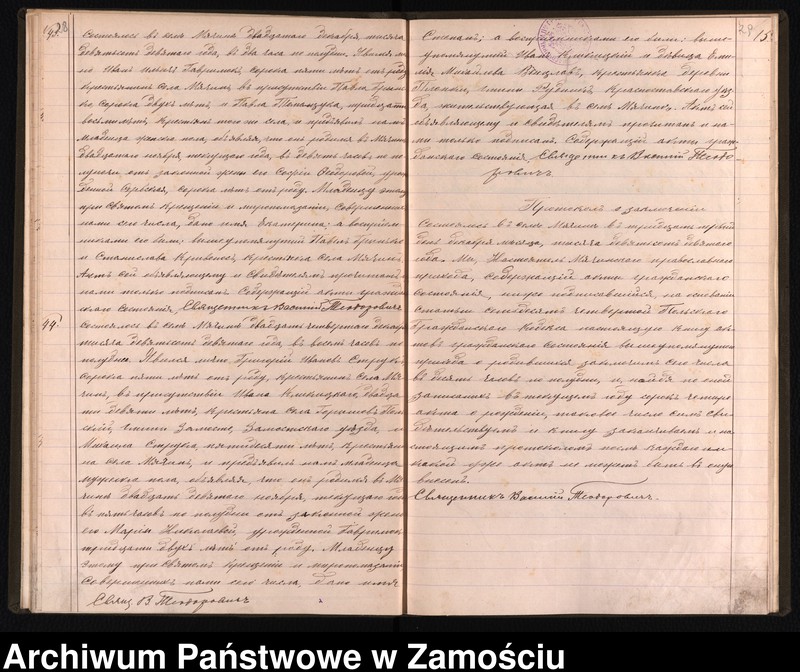 43.
Состоялось въ селѣ Мячинѣ двадцатаго декабря тысяча
девятьсотъ девятаго года, въ два часа по полудни. Явился лич-
но Иванъ Гаврилюкъ, сорока пяти лѣтъ отъ роду
крестьянинъ села Мячинъ, въ присутствіи Павла
сорока двухъ лѣтъ и Павла тридцати
восьми лѣтъ, крестьянъ того же села, и предъявилъ намъ
младенца женска пола, объявляя, что онъ родился въ Мячинѣ
двадцатаго ноября, текущаго года, въ девять часовъ по по-
лудни, отъ законной жены его Софіи Ѳедоровой, урож-
денной сорока лѣтъ отъ роду. Младенцу этому
при святомъ крещеніи и миропомазаніи, совершенномъ
нами сего числа, дано имя Екатерина; а воспріем-
никами его были: вышеупомянутый Павелъ
и Станислава крестьянка села Мячинъ.
Актъ сей объявляющему и свидѣтелямъ прочитанъ
нами только подписанъ. Содержащій акты граждан-
скаго состоянія, Священникъ Василій Теодоровичъ
44.
Состоялось въ селѣ Мячинѣ двадцать четвертаго декабря
тысяча девятьсотъ девятаго года, въ восемь часовъ по
полудни. Явился лично Григорій Ивановъ Струкъ
сорока пяти лѣтъ отъ роду, крестьянинъ села Мя-
чинъ, въ присутствіи Ивана двадца-
ти девяти лѣтъ, крестьянина села
гмины Замостье, Замостскаго уѣзда, и
Михаила пятидесяти лѣтъ, крестьяни-
на села Мячинъ, и предъявилъ намъ младенца
мужеска пола, объявляя, что онъ родился въ Мя-
чинѣ двадцать девятаго ноября, текущаго года
въ пять часовъ по полудни отъ законной жены
его Маріи Николаевой, урожденной Гаврилюкъ
тридцати двухъ лѣтъ отъ роду. Младенцу
этому при святомъ крещеніи и миропомазаніи
совершенныхъ нами сего числа, дано имя
Свящ В Теодоровичъ
29 15.
Степанъ; а воспріемниками его были: выше-
упомянутый Иванъ и дѣвица
крестьянка деревни
гмины Рудникъ Красноставскаго уѣз-
да, жительствующая въ селѣ Мячинѣ. Актъ сей
объявляющему и свидѣтелямъ прочитанъ и на-
ми только подписанъ. Содержащій акты граж-
данскаго состоянія, Священникъ Василій Теодо-
ровичъ.
Протоколъ о заключеніи
Состоялось въ селѣ Мячинѣ въ тридцать первый
день декабря мѣсяца, тысяча девятьсотъ девятаго
года. Мы, Настоятель Мячинскаго православнаго
прихода, содержащій акты гражданскаго
состоянія, ниже подписавшійся, на основаніи
статьи семьдесятъ четвертой Польскаго
Гражданскаго Кодекса настоящую книгу ак-
товъ гражданскаго состоянія вышеупомянутаго
прихода о родившихся заключили сего числа
въ десять часовъ по полудни, и, найдя по оной
записанныхъ въ текущемъ году сорокъ четыре
акта о рожденіи, таковое число симъ сви-
дѣтельствуемъ и книгу заканчиваемъ на-
стоящимъ протоколомъ послѣ котораго ни-
какой уже актъ не можетъ быть въ оную
внесенъ.
Священникъ Василій Теодоровичъ.
Archiwum Państwowe w Zamościu